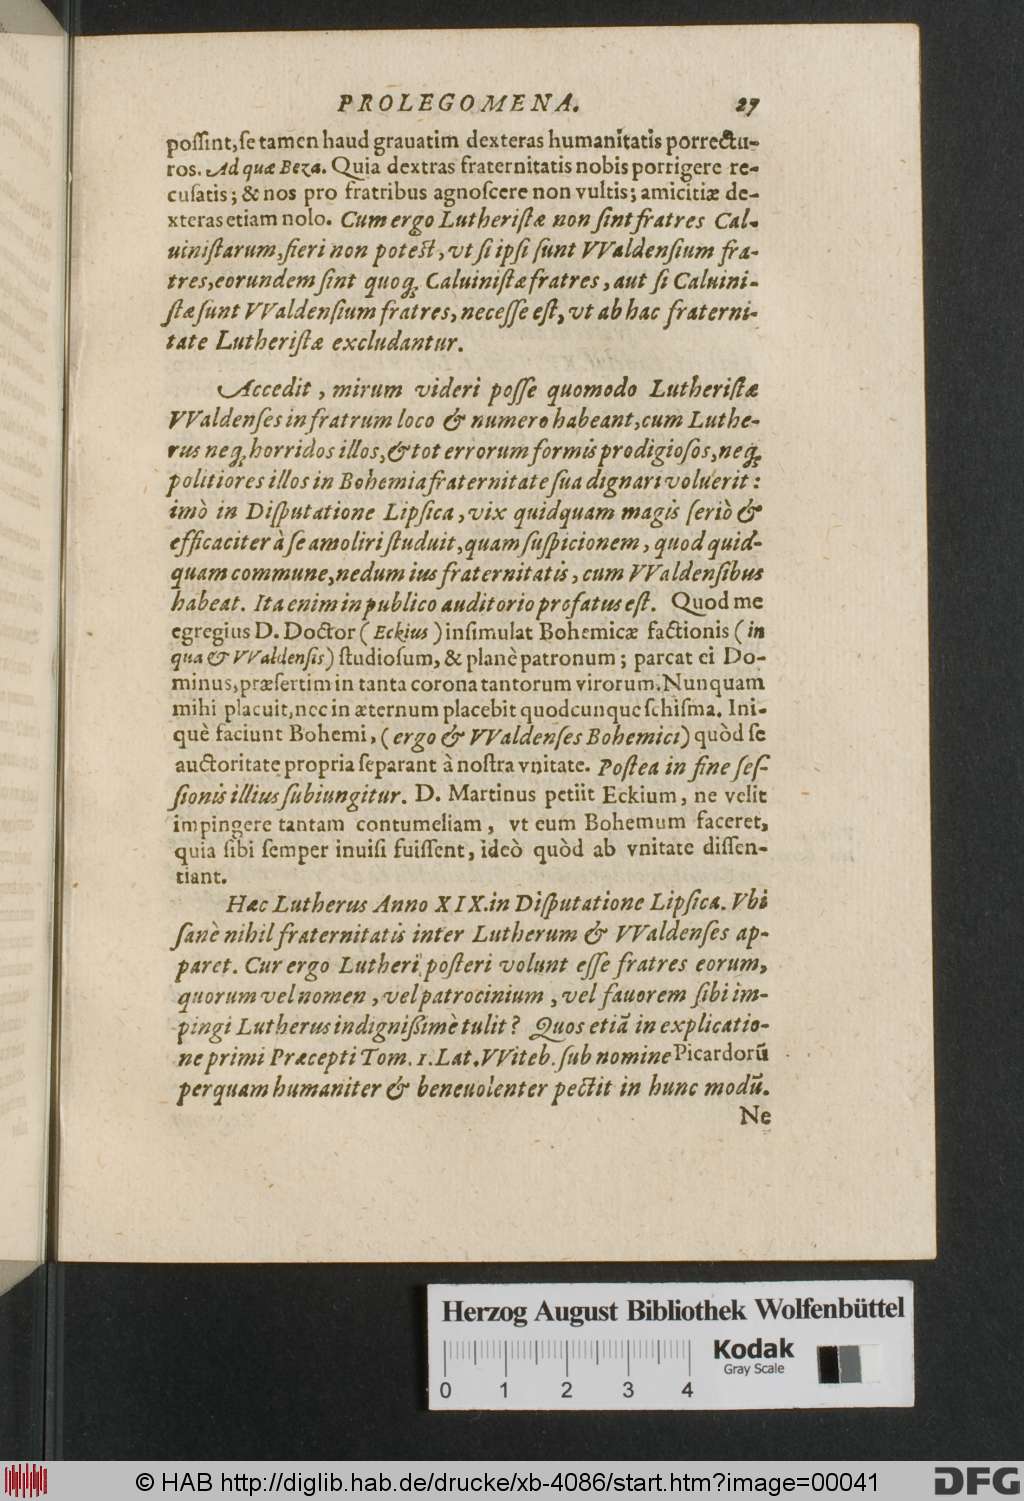 PROLEGOMENA. 27
poſſint, ſe tamen haud grauatim dexteras humanitatis porrectu-
ros. Ad quæ Beza. Quia dextras fraternitatis nobis porrigere re-
cuſatis; & nos pro fratribus agnoſcere non vultis; amicitiæ de-
xteras etiam nolo. Cum ergo Lutheriſtæ non ſint fratres Cal-
uiniſtarum, fieri non poteſt, vt ſi ipſi ſunt VValdenſium fra-
tres, eorundem ſint quoq; Caluiniſtæ fratres, aut ſi Caluini-
ſtæ ſunt VValdenſium fratres, neceſſe eſt, vt ab hac fraterni-
tate Lutheriſtæ excludantur.
Accedit, mirum videri poſſe quomodo Lutheriſtæ
VValdenſes in fratrum loco & numero habeant, cum Luthe-
rus neq; horridos illos, & tot errorum formis prodigioſos, neq;
politiores illos in Bohemia fraternitate ſua dignari voluerit:
imò in Diſputatione Lipſica, vix quidquam magis ſeriò &
efficaciter à ſe amoliri ſtuduit, quam ſuſpicionem, quod quid-
quam commune, nedum ius fraternitatis, cum VValdenſibus
habeat. Ita enim in publico auditorio profatus eſt. Quod me
egregius D. Doctor (Eckius) inſimulat Bohemicæ factionis (in
qua & VValdenſis) ſtudioſum, & planè patronum; parcat ei Do-
minus, præſertim in tanta corona tantorum virorum. Nunquam
mihi placuit, nec in æternum placebit quodcunque ſchiſma. Ini-
què faciunt Bohemi, (ergo & VValdenſes Bohemici) quòd ſe
auctoritate propria ſeparant à noſtra vnitate. Poſtea in fine ſeſ-
ſionis illius ſubiungitur. D. Martinus petiit Eckium, ne velit
impingere tantam contumeliam, vt eum Bohemum faceret,
quia ſibi ſemper inuiſi fuiſſent, ideò quòd ab vnitate diſſen-
tiant.
Hæc Lutherus Anno XIX. in Diſputatione Lipſica. Vbi
ſanè nihil fraternitatis inter Lutherum & VValdenſes ap-
paret. Cur ergo Lutheri poſteri volunt eſſe fratres eorum,
quorum vel nomen, vel patrocinium, vel fauorem ſibi im-
pingi Lutherus indigniſſimè tulit? Quos etiã in explicatio-
ne primi Præcepti Tom. 1. Lat. VViteb. ſub nomine Picardorũ
perquam humaniter & beneuolenter pectit in hunc modũ.
Ne
Herzog August Bibliothek Wolfenbüttel
Kodak
Gray Scale
0 1 2 3 4
© HAB http://diglib.hab.de/drucke/xb-4086/start.htm?image=00041
DFG